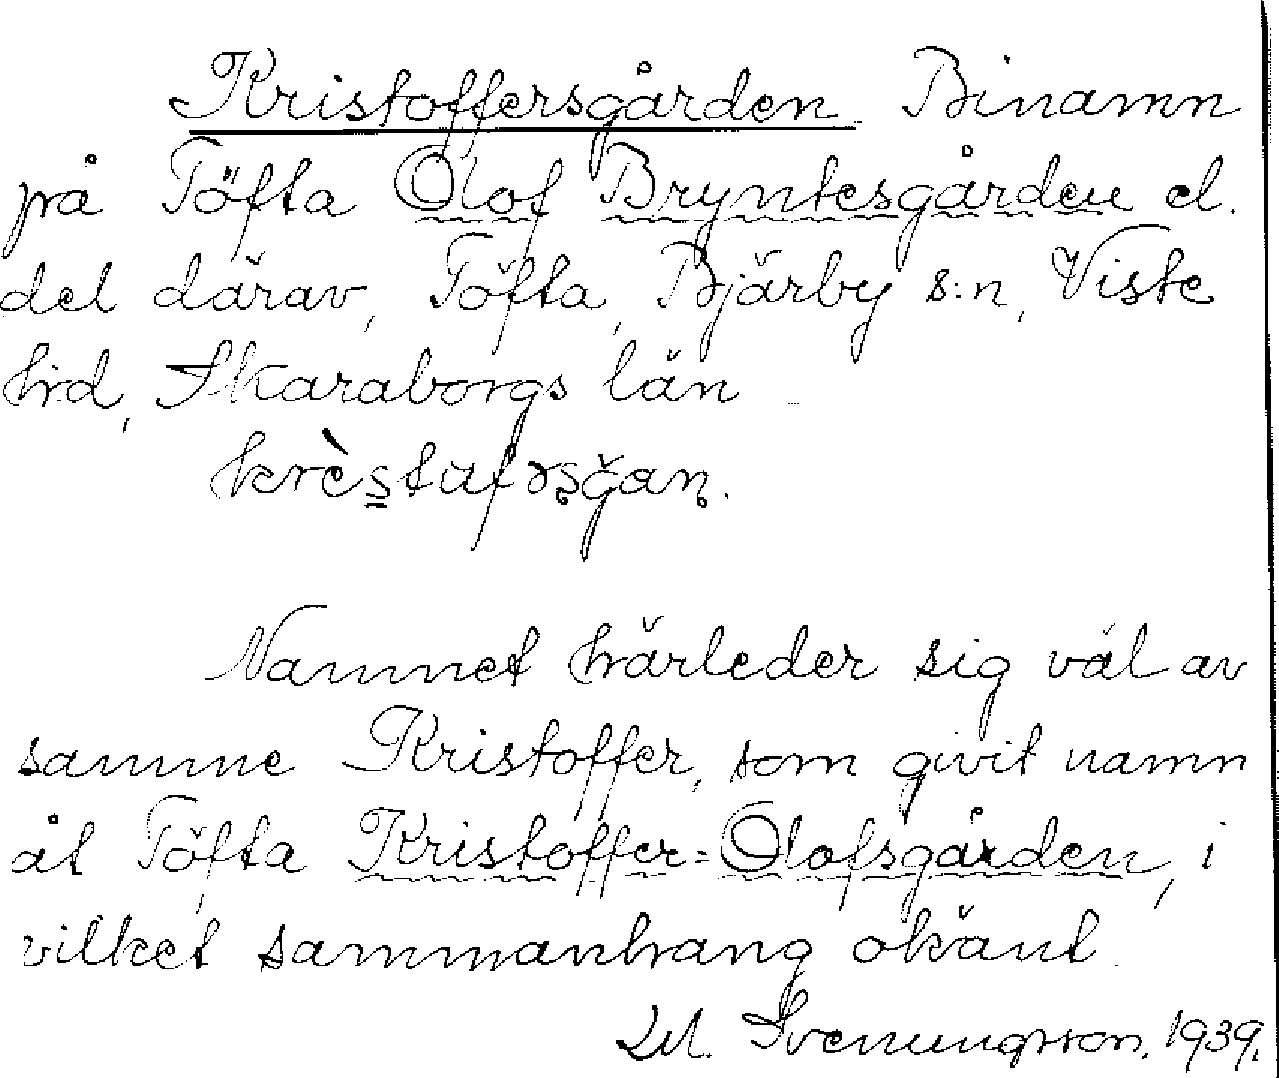 Kristoffersgården Binamn
på Töfta Olof Bryntesgården el.
del därav, Töfta, Bjärby s:n, Viste
hrd, Skaraborgs län

Namnet härleder sig väl av
samme Kristoffer, som givit namn
åt Töfta Kristoffer=Olofsgården, i
vilket sammanhang okänt.
Svenungsson. 1939.